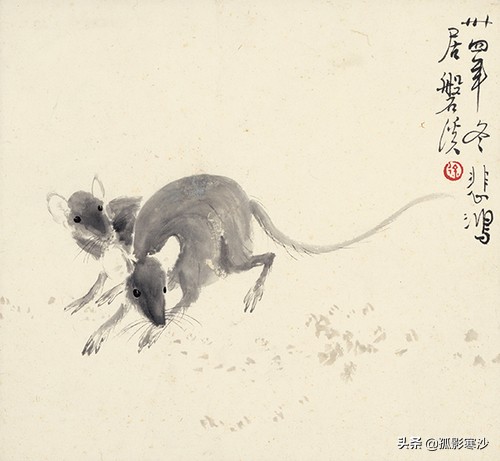 卅四年冬悲鸿
居磐溪
徐
头条 @孤影寒沙